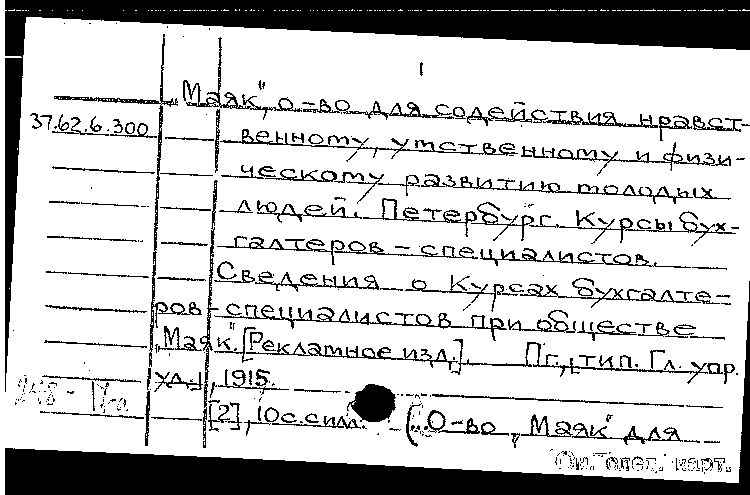 1
„Маяк", о-во для содействия нравст-
37.62.6.300
венному, умственному и физи-
ческому развитию молодых
людей. Петербург. Курсы бух-
галтеров-специалистов.
Сведения о Курсах бухгалте-
ров-специалистов при обществе
„Маяк". [Рекламное изд.]. Пг., тип. Гл. упр.
уд., 1915.
[2], 10 с. с илл. („О-во „Маяк" для
См. след. карт.